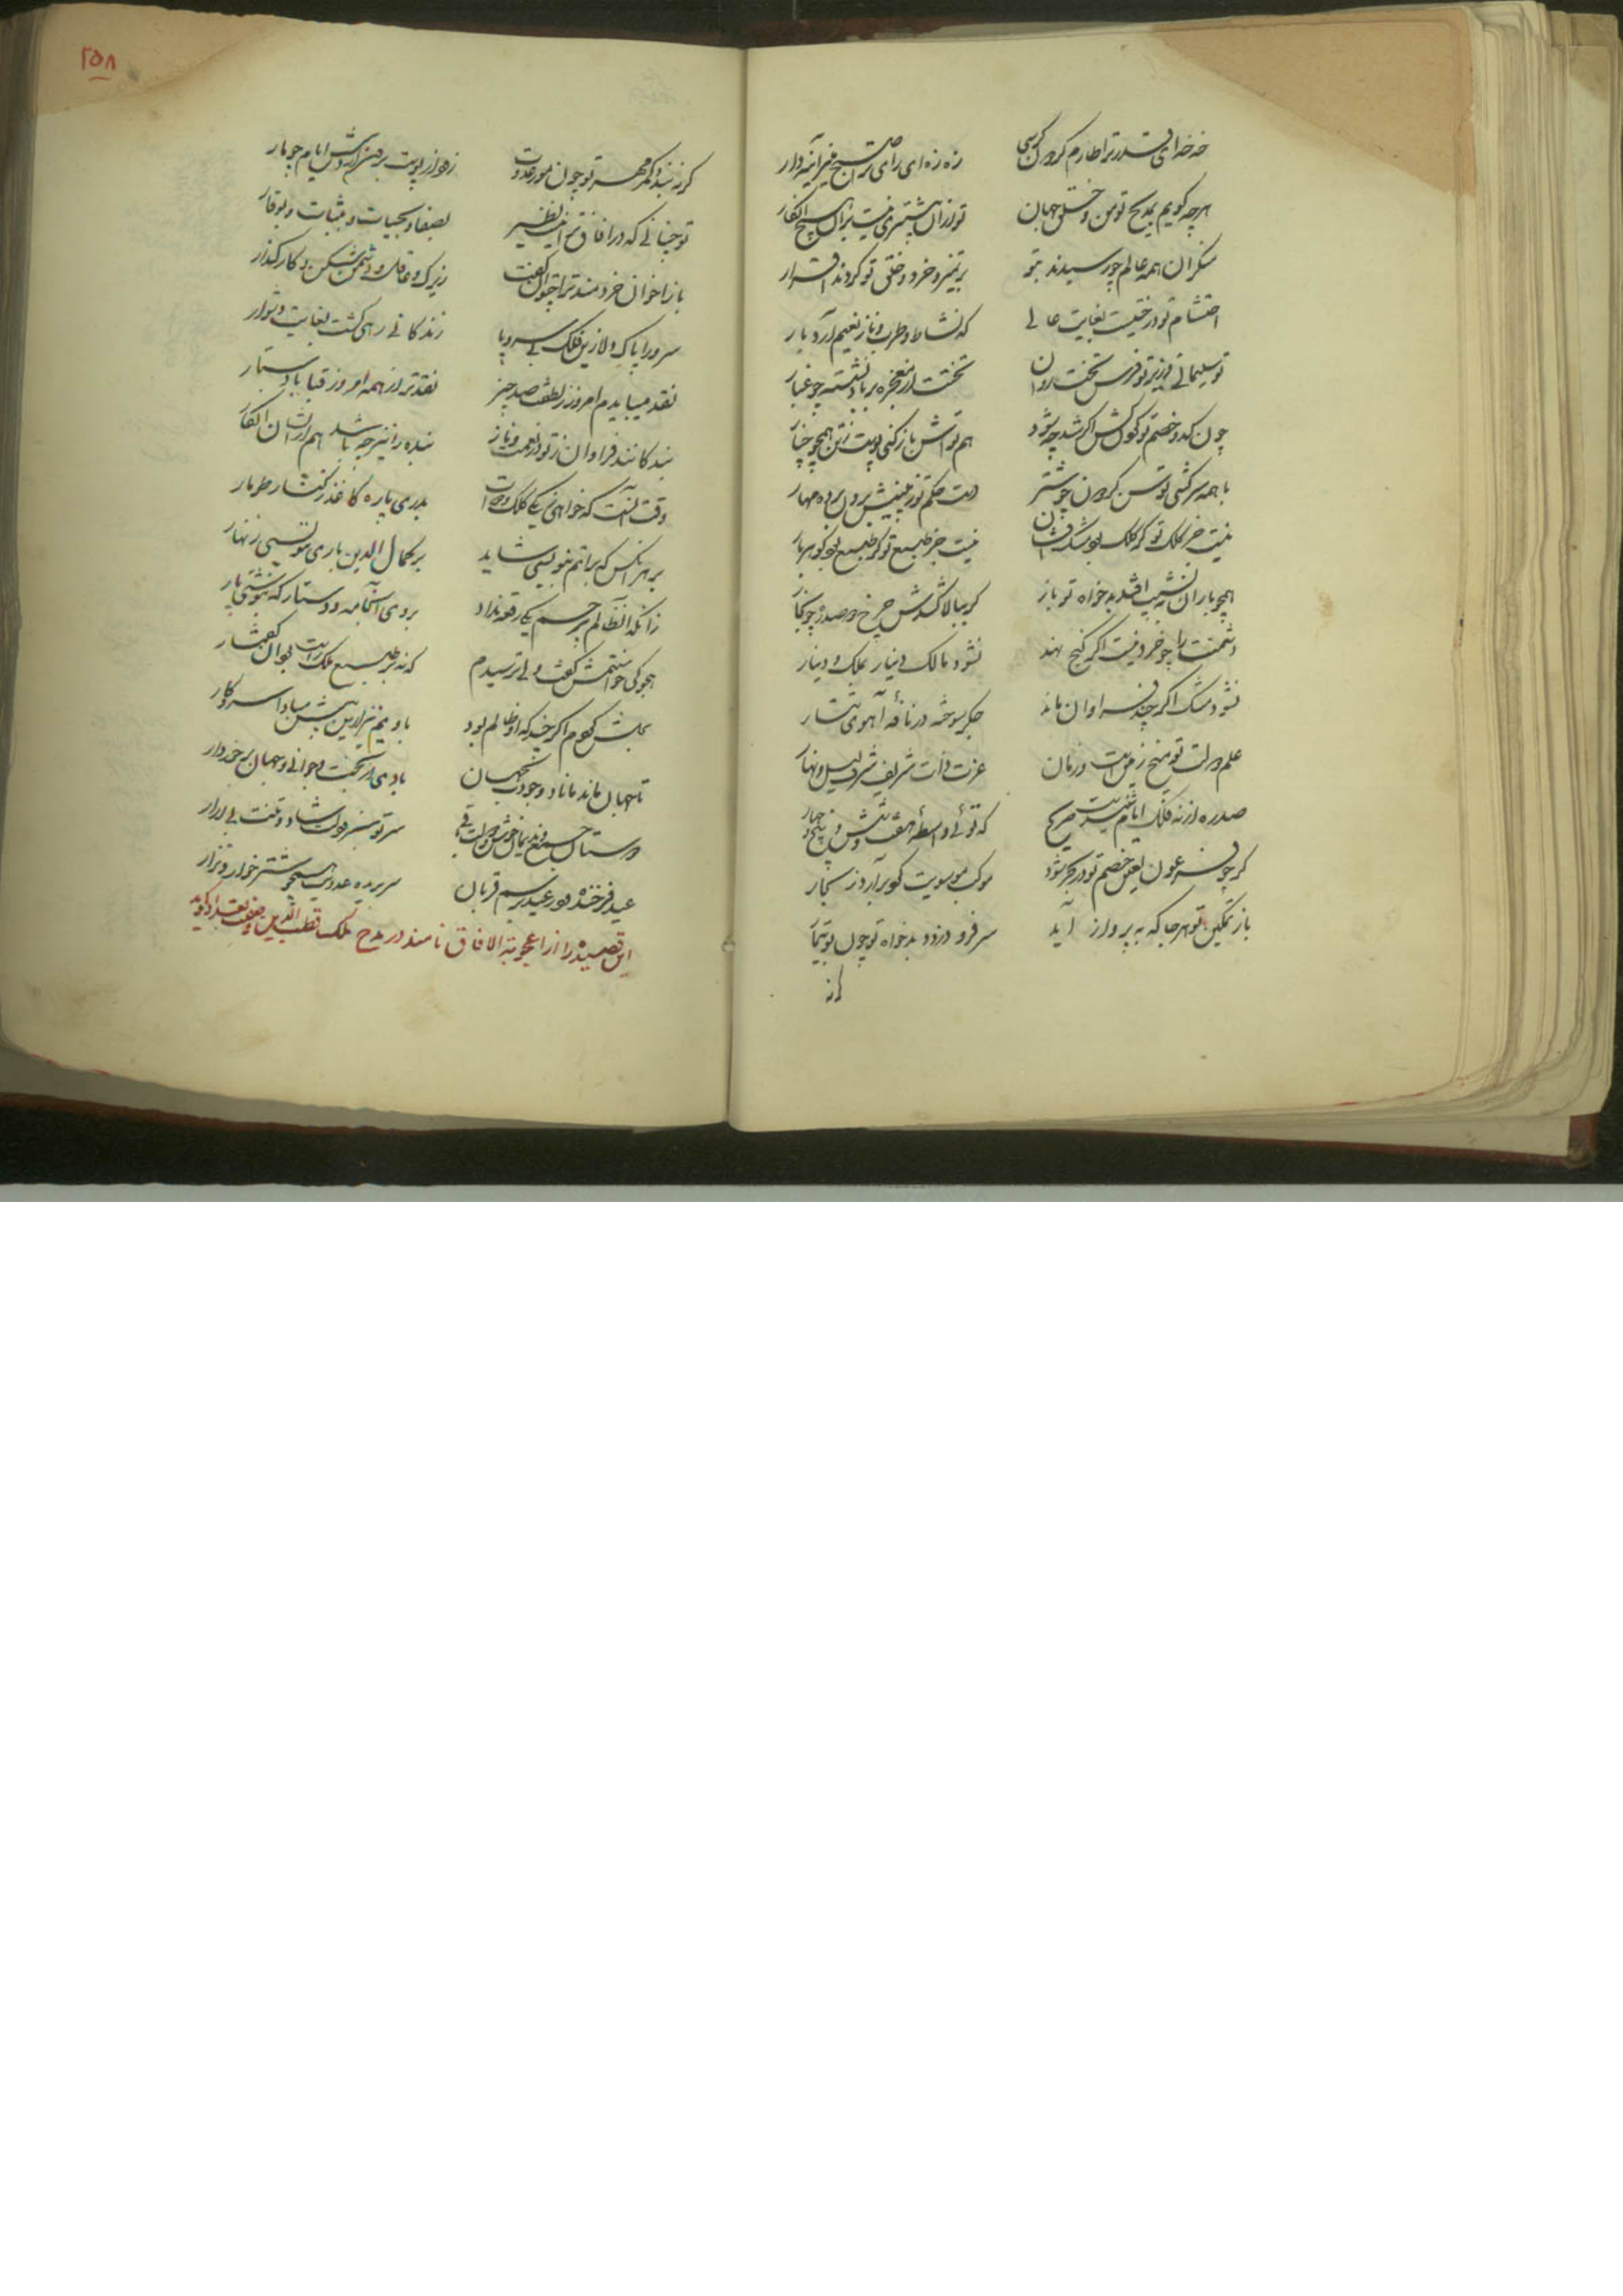 خه خه ای قدر ترا طارم گردون کرسی زه زه ای رای ترا صبح منیر آینه دار
هرچه گویم بمدیح تو من و خلق جهان تو از آن بیشتری نیست بر آن هیچ انکار
منکران همه عالم چو رسیدند بتو بر تمیز و خرد و خلق تو کردند اقرار
احتشام تو درختیست بغایت عالی که نشاط و طرب و ناز و نعیم آرد بار
تو سلیمانی و زیر تو فرس تخت روان تختت از معجزه بر باد نشسته چو غبار
چون کدو خصم تو گردن کش اگر شد چه شود هم تواش باز کنی پوست ز تن همچو خیار
با همه سرکشی توسن گردون چو شتر دست حکم تو ز بینیش برون برده مهار
نیست جز کلک تو گر کلک بود مشک فشان نیست جز طبع تو گر طبع بود گوهر بار
همچو باران به نشیب افتد بدخواه تو باز گر ببالا کشدش چرخ دو صد ره چو بخار
دشمنت را چو خرد نیست اگر گنج نهند نشود مالک دینار بملک دینار
نشود مشک اگر چند فراوان ماند جگر سوخته در نافهٔ آهوی تتار
علم دولت تو میخ زمین است و زمان عزت ذات شریفت شرف لیل و نهار
صد ره از نه فلک ایام شنیدست صریح که توئی واسطهٔ هفت و شش و پنج و چهار
گر چو فرعون لعین خصم تو در بحر شود موکب موسویت گو برآرد ز بحار
باز تمکین تو هر جا که به پرواز آید سر فرو دزدد بدخواه تو چون بوتیمار
گر نه
۲۵۸
گر نه بندد کمر مهر تو چون مور عدوت زود از پوست برون آردش ایام چو مار
تو چنانی که در آفاق ترا نیست نظیر بصفا و بحیات و بثبات و بوقار
باز اخوان خردمند ترا چتوان گفت زیرک و عاقل و دشمن شکن و کارگذار
سرورا پاک دلا زین فلک بی سر و پا زندگانی رهی گشت بغایت دشوار
نقد می بایدم امروز ز لطفت صد چیز نقدتر از همه امروز قبا با دستار
بندگانند فراوان ز تو در نعمت و ناز بنده را نیز چه باشد هم از ایشان انگار
وقت آنست که خواهی ز یکی کلک و دوات بدری پاره کاغذ ز کنار طومار
بر هر آنکس که براتم بنویسی شاید بر کمال الدین باری ننویسی زنهار
زانکه آن ظالم بی رحم یکی رقعه نداد بر وی آن جامه و دستار که بنوشتی پار
هجوکی خواستمش گفت ولی ترسیدم که نه بر طبع ملک راست بود آن گفتار
بحلش کردم اگر چند که او ظالم بود با ویم نیز از این بیش مبادا سر و کار
تا جهان ماند ماناد وجودت بجهان بادی از بخت و جوانی و جهان برخوردار
سر تو سبز و دلت شاد و تنت بی آزار
عید فرخنده در عید برسم قربان سر بریده عدویت همچو شتر خوار و نزار
این قصیده را از اعجوبة الآفاق نامند در مدح ملک قطب الدین